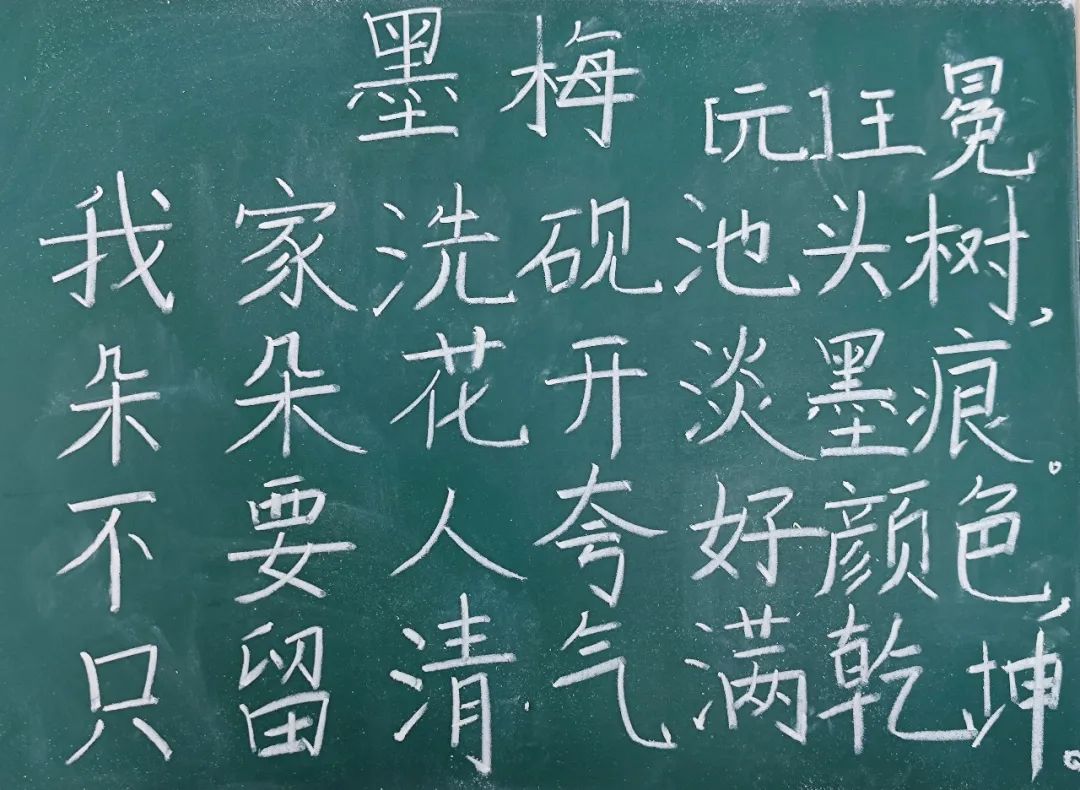 墨梅
[元]王冕
我家洗砚池头树，
朵朵花开淡墨痕。
不要人夸好颜色，
只留清气满乾坤。